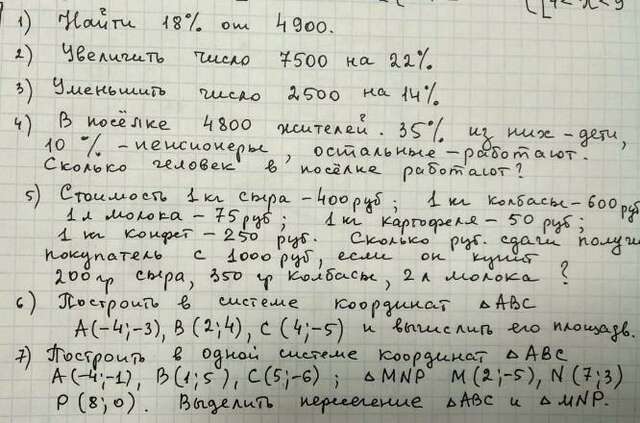 [[4<x<9
1) Найти 18% от 4900.
2) Увеличить число 7500 на 22%
3) Уменьшить число 2500 на 14%
4) В посёлке 4800 жителей. 35% из них - дети,
10% - пенсионеры, остальные - работают.
Сколько человек в посёлке работают?
5) Стоимость 1 кг сыра - 400 руб; 1 кг колбасы - 600 руб
1 л молока - 75 руб; 1 кг картофеля - 50 руб;
1 кг конфет - 250 руб. Сколько руб. сдачи получи
покупатель с 1000 руб, если он купит
200 гр сыра, 350 гр колбасы, 2 л молока?
6) Построить в системе координат △ABC
A(-4;-3), B(2;4), C(4;-5) и вычислить его площадь.
7) Построить в одной системе координат △ABC
A(-4;-1), B(1;5), C(5;-6); △MNP M(2;-5), N(7;3)
P(8;0). Выделить пересечение △ABC и △MNP.